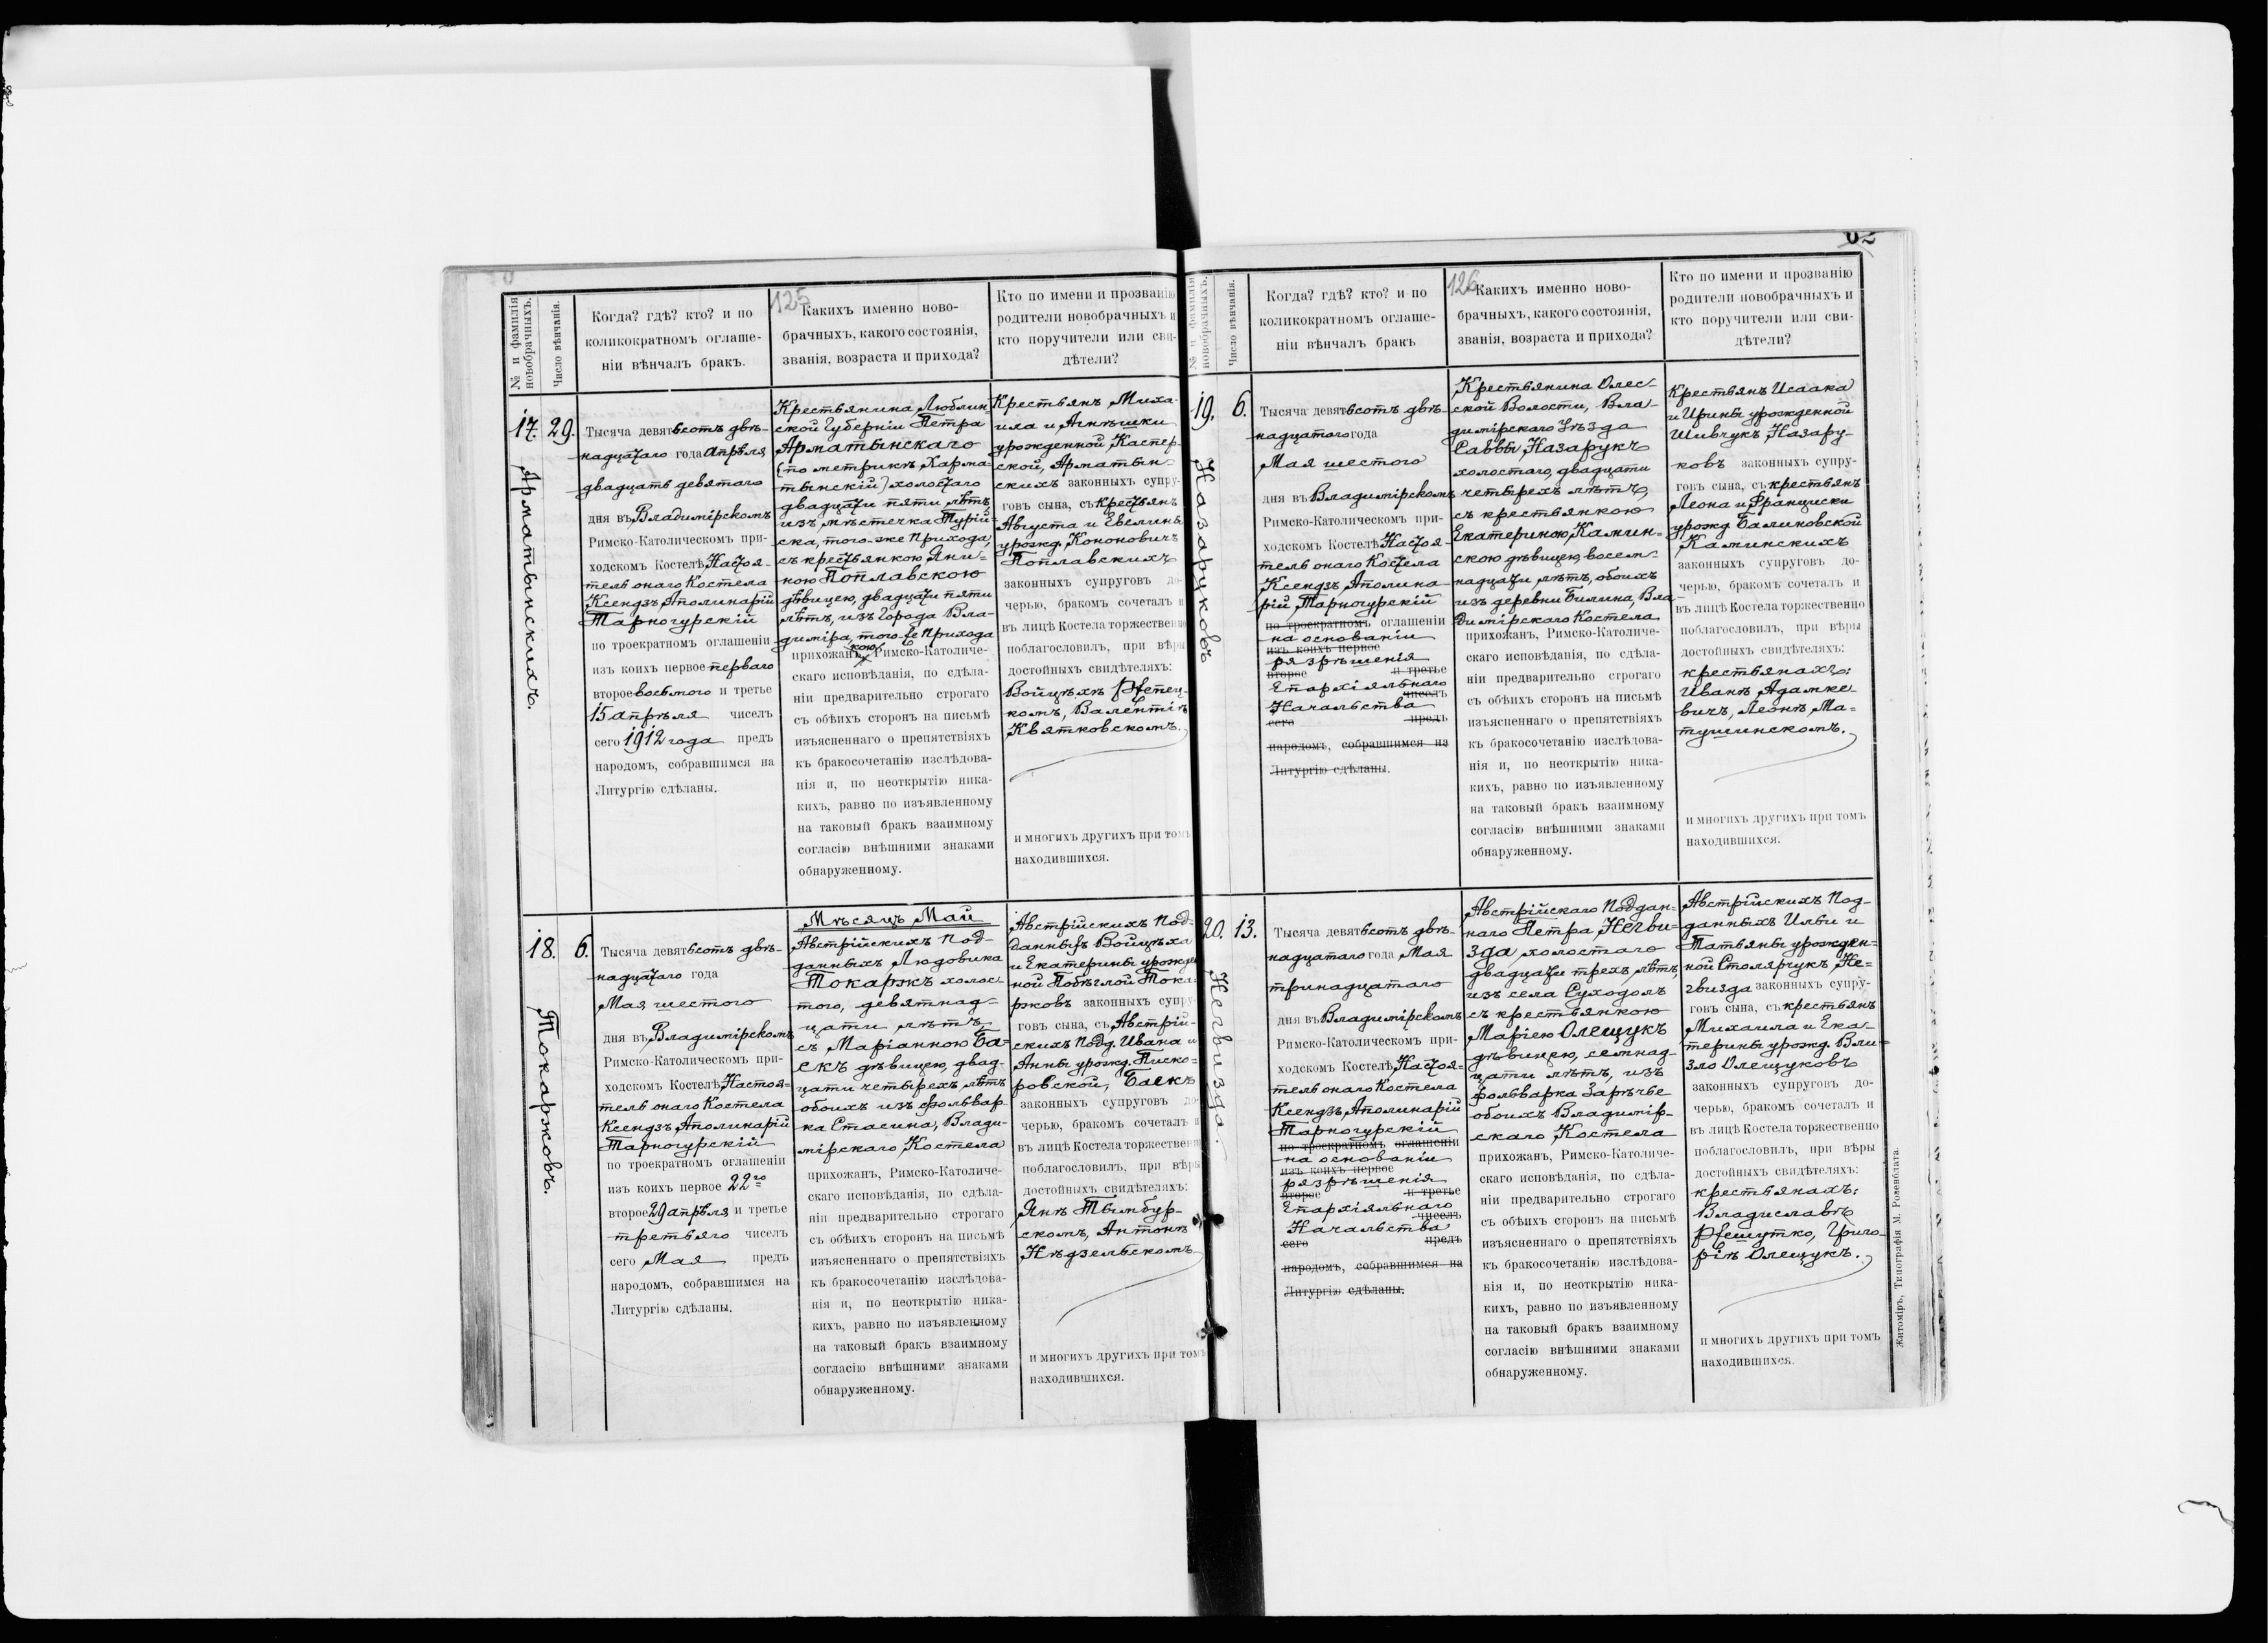 125
№ и фамилія новобрачныхъ.
Число вѣнчанія.
Когда? гдѣ? кто? и по
коликократномъ оглаше-
ніи вѣнчалъ бракъ.
Какихъ именно ново-
брачныхъ, какого состоянія,
званія, возраста и прихода?
Кто по имени и прозванію
родители новобрачныхъ и
кто поручители или сви-
дѣтели?
17.
29.
Арматынскихъ.
Тысяча девятьсотъ двѣ-
надцатаго года Апрѣля
двадцать девятаго
дня въ Владимірскомъ
Римско-Католическомъ при-
ходскомъ Костелѣ Настоя-
тель онаго Костела
Ксендзъ Аполинарій
Тарногурскій
по троекратномъ оглашеніи
изъ коихъ первое перваго
второе восьмого и третье
15 апрѣля чиселъ
сего 1912 года предъ
народомъ, собравшимся на
Литургію сдѣланы.
Крестьянина Люблин-
ской Губерніи Петра
Арматынскаго
(по метрикѣ Харма-
тынскій) холостаго
двадцати пяти лѣтъ
изъ мѣстечка Турій-
ска, того-же Прихода,
съ крестьянкою Яни-
ною Поплавскою
дѣвицею, двадцати пяти
лѣтъ, изъ города Вла-
диміра, того-же Прихода
прихожанкою, Римско-Католиче-
скаго исповѣданія, по сдѣла-
ніи предварительно строгаго
съ обѣихъ сторонъ на письмѣ
изъясненнаго о препятствіяхъ
къ бракосочетанію изслѣдова-
нія и, по неоткрытію ника-
кихъ, равно по изъявленному
на таковый бракъ взаимному
согласію внѣшними знаками
обнаруженному.
Крестьянъ Миха-
ила и Агнѣшки
урожденной Каспер-
ской, Арматын-
скихъ законныхъ супру-
говъ сына, съ крестьянъ
Августа и Евелины
урожд. Кононовичъ
Поплавскихъ
законныхъ супруговъ до-
черью, бракомъ сочеталъ и
въ лицѣ Костела торжественно
поблагословилъ, при вѣры
достойныхъ свидѣтеляхъ:
Войцѣхѣ Ржепец-
комъ, Валентіѣ
Квятковскомъ.
и многихъ другихъ при томъ
находившихся.
18.
6.
Токаржовъ.
Тысяча девятьсотъ двѣ-
надцатаго года
Мая шестого
дня въ Владимірскомъ
Римско-Католическомъ при-
ходскомъ Костелѣ Настоя-
тель онаго Костела
Ксендзъ Аполинарій
Тарногурскій
по троекратномъ оглашеніи
изъ коихъ первое 22го
второе 29 апрѣля и третье
третьяго чиселъ
сего Мая предъ
народомъ, собравшимся на
Литургію сдѣланы.
Мѣсяцъ Май
Австрійскихъ под-
данныхъ Людовика
Токаржъ холос-
таго, девятнад-
цати лѣтъ,
съ Маріанною Ба-
екъ дѣвицею, двад-
цати четырехъ лѣтъ
обоихъ изъ фольвар-
ка Стасина, Влади-
мірскаго Костела
прихожанъ, Римско-Католиче-
скаго исповѣданія, по сдѣла-
ніи предварительно строгаго
съ обѣихъ сторонъ на письмѣ
изъясненнаго о препятствіяхъ
къ бракосочетанію изслѣдова-
нія и, по неоткрытію ника-
кихъ, равно по изъявленному
на таковый бракъ взаимному
согласію внѣшними знаками
обнаруженному.
Австрійскихъ Под-
данныхъ Войцѣха
и Екатерины урожден
ной Побѣглой Тока-
ржовъ законныхъ супру-
говъ сына, съ Австрій-
скихъ Подд. Ивана и
Анны урожд. Писко-
ровской, Баекъ
законныхъ супруговъ до-
черью, бракомъ сочеталъ и
въ лицѣ Костела торжественно
поблагословилъ, при вѣры
достойныхъ свидѣтеляхъ:
Янѣ Тымбур-
скомъ, Антонѣ
Нѣдзельскомъ
и многихъ другихъ при томъ
находившихся.
62
126
№ и фамилія новобрачныхъ.
Число вѣнчанія.
Когда? гдѣ? кто? и по
коликократномъ оглаше-
ніи вѣнчалъ бракъ
Какихъ именно ново-
брачныхъ, какого состоянія,
званія, возраста и прихода?
Кто по имени и прозванію
родители новобрачныхъ и
кто поручители или сви-
дѣтели?
19.
6.
Назаруковъ
Тысяча девятьсотъ двѣ-
надцатаго года
Мая шестого
дня въ Владимірскомъ
Римско-Католическомъ при-
ходскомъ Костелѣ Настоя-
тель онаго Костела
Ксендзъ Аполина-
рій Тарногурскій
по троекратномъ оглашеніи
на основаніи
изъ коихъ первое
разрѣшенія
второе и третье
Епархіяльнаго
чиселъ
Начальства
сего предъ
народомъ, собравшимся на
Литургію сдѣланы.
Крестьянина Олес-
ской Волости, Вла-
димірскаго Уѣзда
Саввы Назарукъ
холостаго, двадцати
четырехъ лѣтъ,
съ крестьянкою
Екатериною Камин-
скою дѣвицею, восем-
надцати лѣтъ, обоихъ
изъ деревни Билина, Вла-
димірскаго Костела
прихожанъ, Римско-Католиче-
скаго исповѣданія, по сдѣла-
ніи предварительно строгаго
съ обѣихъ сторонъ на письмѣ
изъясненнаго о препятствіяхъ
къ бракосочетанію изслѣдова-
нія и, по неоткрытію ника-
кихъ, равно по изъявленному
на таковый бракъ взаимному
согласію внѣшними знаками
обнаруженному.
Крестьянъ Исаака
и Ирины урожденной
Шивчукъ Назару-
ковъ законныхъ супру-
говъ сына, съ крестьянъ
Леона и Францишки
урожд. Балиновской
Каминскихъ
законныхъ супруговъ до-
черью, бракомъ сочеталъ и
въ лицѣ Костела торжественно
поблагословилъ, при вѣры
достойныхъ свидѣтеляхъ:
крестьянахъ:
Иванѣ Адамке-
вичъ, Леонѣ Ма-
тушинскомъ.
и многихъ другихъ при томъ
находившихся.
20.
13.
Негвизда.
Тысяча девятьсотъ двѣ-
надцатаго года Мая
тринадцатаго
дня въ Владимірскомъ
Римско-Католическомъ при-
ходскомъ Костелѣ Настоя-
тель онаго Костела
Ксендзъ Аполинарій
Тарногурскій
по троекратномъ оглашеніи
на основаніи
изъ коихъ первое
разрѣшенія
второе и третье
Епархіяльнаго
чиселъ
Начальства
сего предъ
народомъ, собравшимся на
Литургію сдѣланы.
Австрійскаго Поддан-
наго Петра Негви-
зда холостаго
двадцати трехъ лѣтъ,
изъ села Суходолъ
съ крестьянкою
Маріею Олещукъ
дѣвицею, семнад-
цати лѣтъ, изъ
фольварка Зарѣчье
обоихъ Владимір-
скаго Костела
прихожанъ, Римско-Католиче-
скаго исповѣданія, по сдѣла-
ніи предварительно строгаго
съ обѣихъ сторонъ на письмѣ
изъясненнаго о препятствіяхъ
къ бракосочетанію изслѣдова-
нія и, по неоткрытію ника-
кихъ, равно по изъявленному
на таковый бракъ взаимному
согласію внѣшними знаками
обнаруженному.
Австрійскихъ Под-
данныхъ Ильи и
Татьяны урожден-
ной Столярчукъ, Не-
гвизда законныхъ супру-
говъ сына, съ крестьянъ
Михаила и Ека-
терины урожд. Вли-
зло Олещуковъ
законныхъ супруговъ до-
черью, бракомъ сочеталъ и
въ лицѣ Костела торжественно
поблагословилъ, при вѣры
достойныхъ свидѣтеляхъ:
крестьянахъ:
Владиславѣ
Ржешутко, Григо-
ріѣ Олещукъ.
и многихъ другихъ при томъ
находившихся.
Житоміръ, Типографія М. Розенблата.